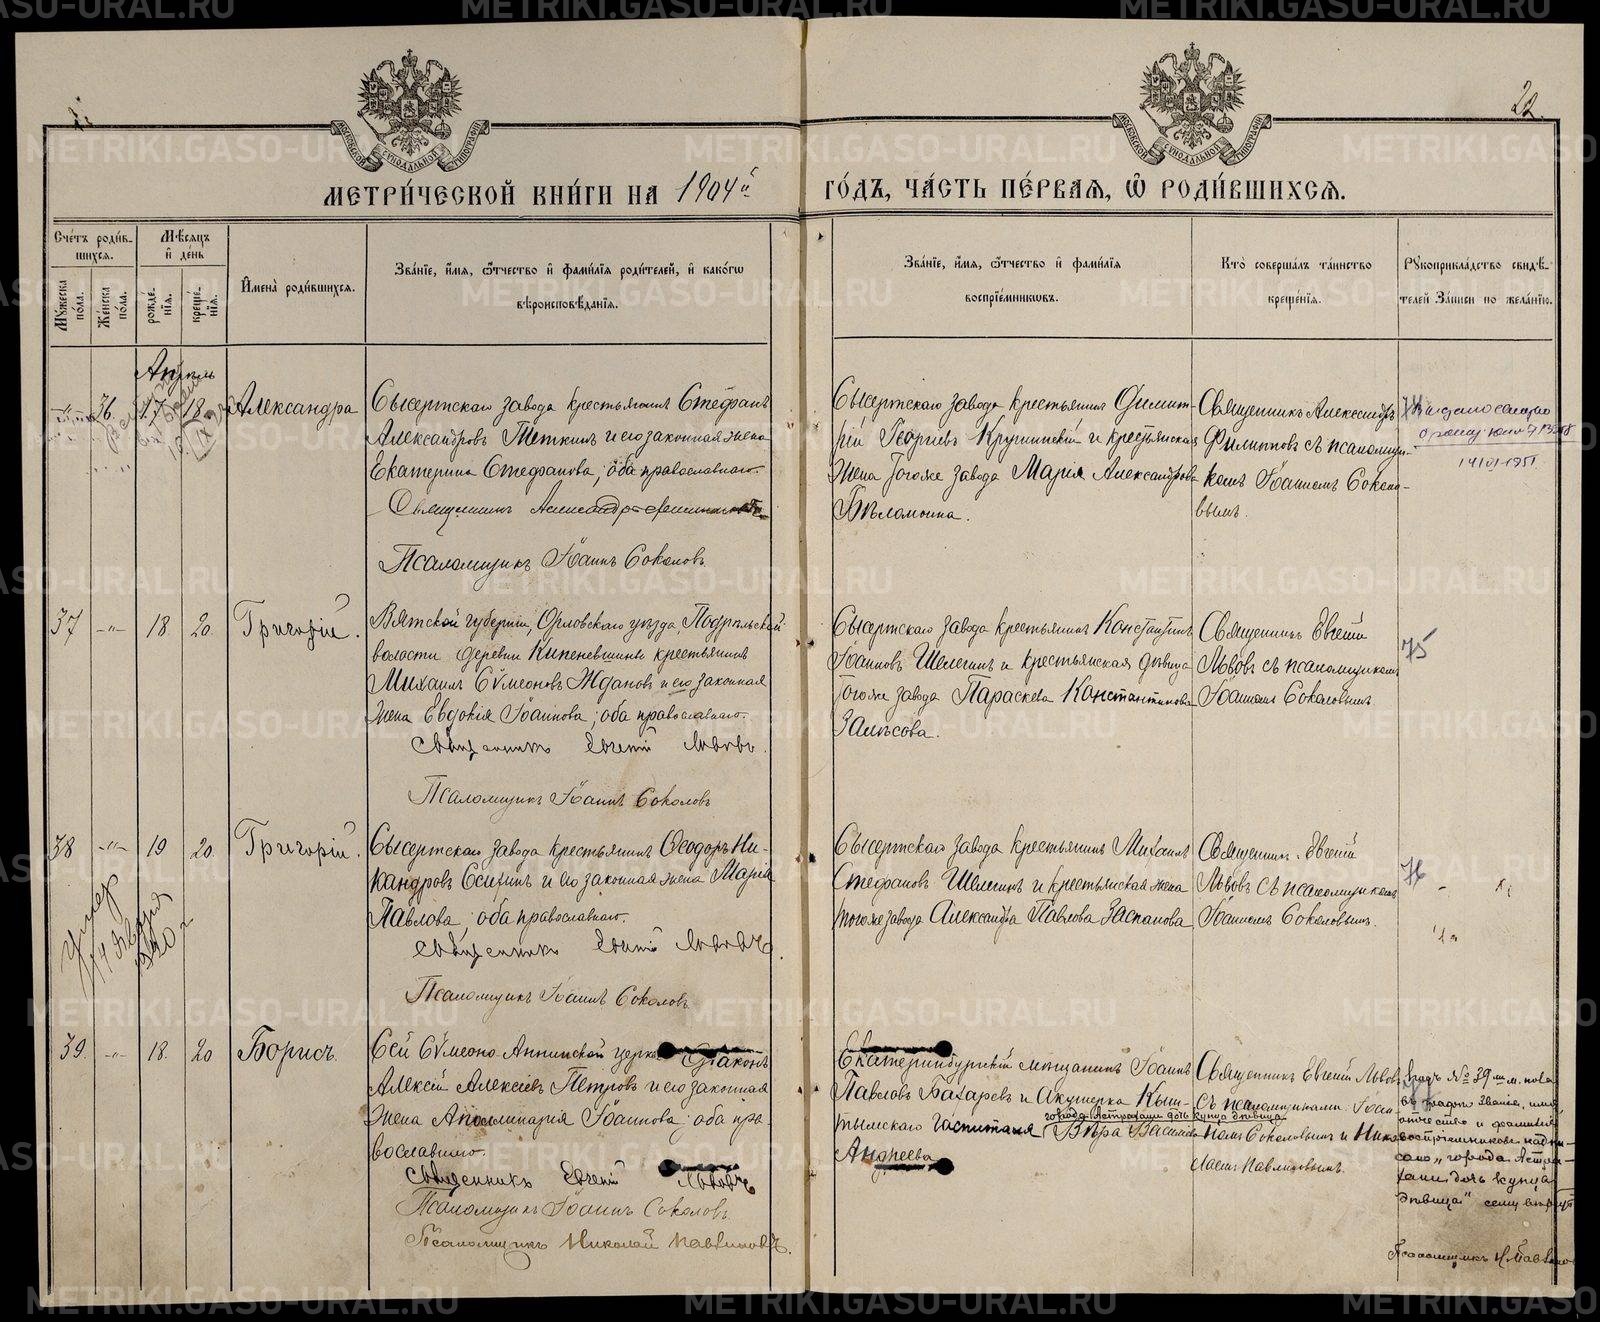 METRIKI.GASO-URAL.RU
22.
МОСКОВСКОЙ СѴНОДАЛЬНОЙ ТИПОГРАФІИ
МОСКОВСКОЙ СѴНОДАЛЬНОЙ ТИПОГРАФІИ
МЕТРИ́ЧЕСКОЙ КНИ́ГИ НА 1904й ГО́ДЪ, ЧА́СТЬ ПЕ́РВАЯ, Ѽ РОДИ́ВШИХСЯ.
Сче́тъ роди́в-
шихся.
Мѣ́сяцъ
и҆ де́нь
Мꙋ́жеска
по́ла.
Же́нска
по́ла.
рожде́-
нїя.
креще́-
нїя.
И҆мена̀ роди́вшихся.
Зва́нїе, и҆́мя, ѻ҆́тчество и҆ фами́лїя роди́телей, и҆ како́гѡ
вѣроисповѣ́данїя.
Зва́нїе, и҆́мя, ѻ҆́тчество и҆ фами́лїя
воспрїе́мникѡвъ.
Кто̀ соверша́лъ та́инство
креще́нїя.
Рꙋкоприкла́дство свидѣ́-
телей за́писи по жела́нїю.
Апрѣль
36. 17 18. Александра
Сысертскаго завода крестьянинъ Стефанъ
Александровъ Теткинъ и его законная жена
Екатерина Стефанова, оба православнаго.
Священникъ Александръ Филипповъ
Псаломщикъ Іоаннъ Соколовъ
Сысертскаго завода крестьянинъ Димит-
рій Георгіевъ Кругинскій и крестьянская
жена тогоже завода Марія Александрова
Бѣломоина.
Священникъ Александръ
Филипповъ съ псаломщи-
комъ Іоанномъ Соколо-
вымъ.
74
14 VI-1951
37 -"- 18. 20. Григорій.
Вятской губерніи, Орловскаго уѣзда, Подрѣльской
волости деревни Кипеневшинь крестьянинъ
Михаилъ Сѵмеоновъ Ждановъ и его законная
жена Евдокія Іоаннова; оба православнаго.
Священникъ Евгеній Львовъ.
Псаломщикъ Іоаннъ Соколовъ
Сысертскаго завода крестьянинъ Константинъ
Іоанновъ Шелегинъ и крестьянская дѣвица
тогоже завода Параскева Константинова
Залѣсова.
Священникъ Евгеній
Львовъ съ псаломщикомъ
Іоанномъ Соколовымъ
75
38 -"- 19 20. Григорій.
Умер
14 января
Сысертскаго завода крестьянинъ Ѳеодоръ Ни-
кандровъ Осипинъ и его законная жена Марія
Павлова; оба православнаго.
Священникъ Евгеній Львовъ.
Псаломщикъ Іоаннъ Соколовъ
Сысертскаго завода крестьянинъ Михаилъ
Стефановъ Шелегинъ и крестьянская жена
тогоже завода Александра Павлова Заспанова
Священникъ Евгеній
Львовъ съ псаломщикомъ
Іоанномъ Соколовымъ.
76
39. -"- 18. 20 Борисъ.
Сей Сѵмеоно-Аннинской церкви Діаконъ
Алексій Алексіевъ Петровъ и его законная
жена Аполлинарія Іоаннова; оба пра-
вославнаго.
Священникъ Евгеній Львовъ
Псаломщикъ Іоаннъ Соколовъ
Псаломщикъ Николай Павлиновъ.
Екатеринбургскій мѣщанинъ Іоаннъ
Павловъ Бахаревъ и Акушерка Кыш-
города Астрахани дочь купца дѣвица
тымскаго госпиталя Вѣра Василіева
Андреева
Священникъ Евгеній Львовъ
съ псаломщиками Іоан-
номъ Соколовымъ и Нико-
лаемъ Павлиновымъ.
№ 39 м. пола
въ графѣ званіе, имя,
отчество и фамилія
воспріемниковъ надпи-
сано „города Астра-
хани дочь купца
дѣвица" сему вѣрить
Псаломщикъ Н. Павлиновъ